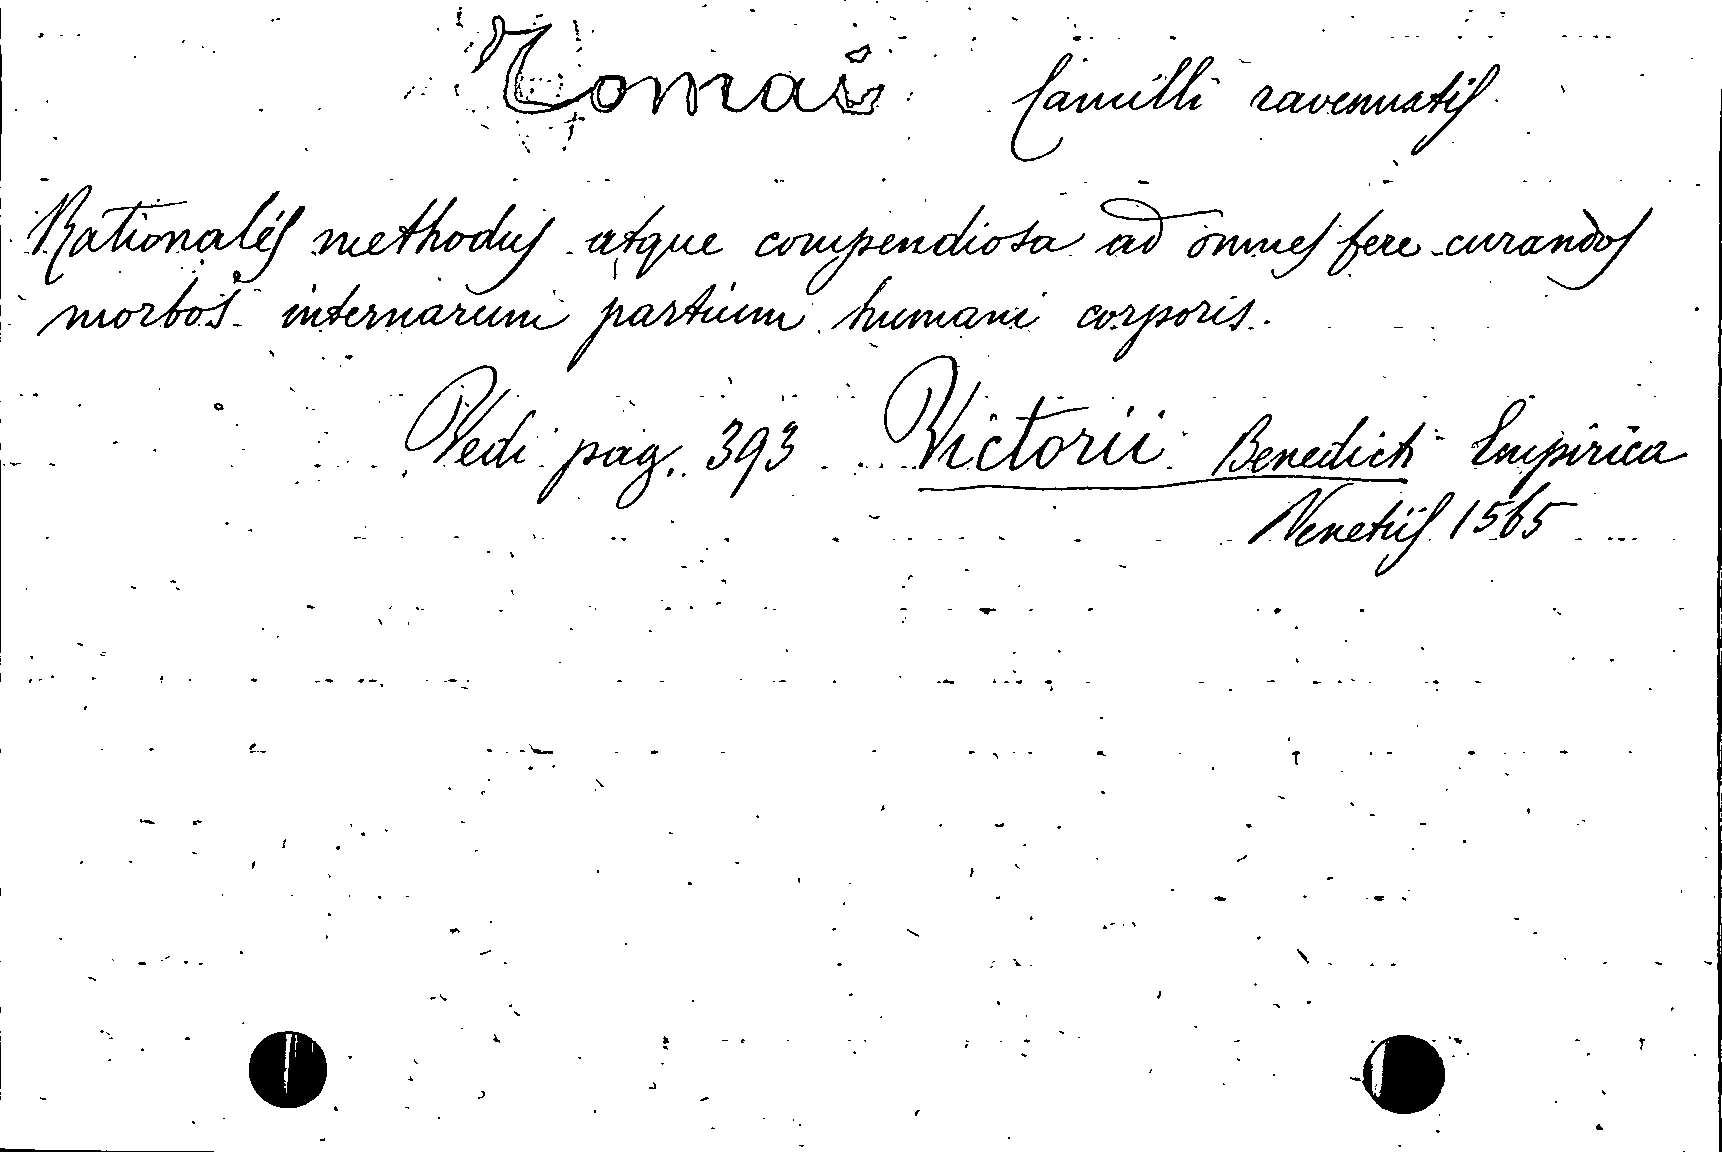 Tomai Camilli ravennatis
Rationales methodus atque compendiosa ad omnes fere curandos
morbos internarum partium humani corporis.
Vedi pag. 393 Victorii Benedicti Empirica
Venetiis 1565